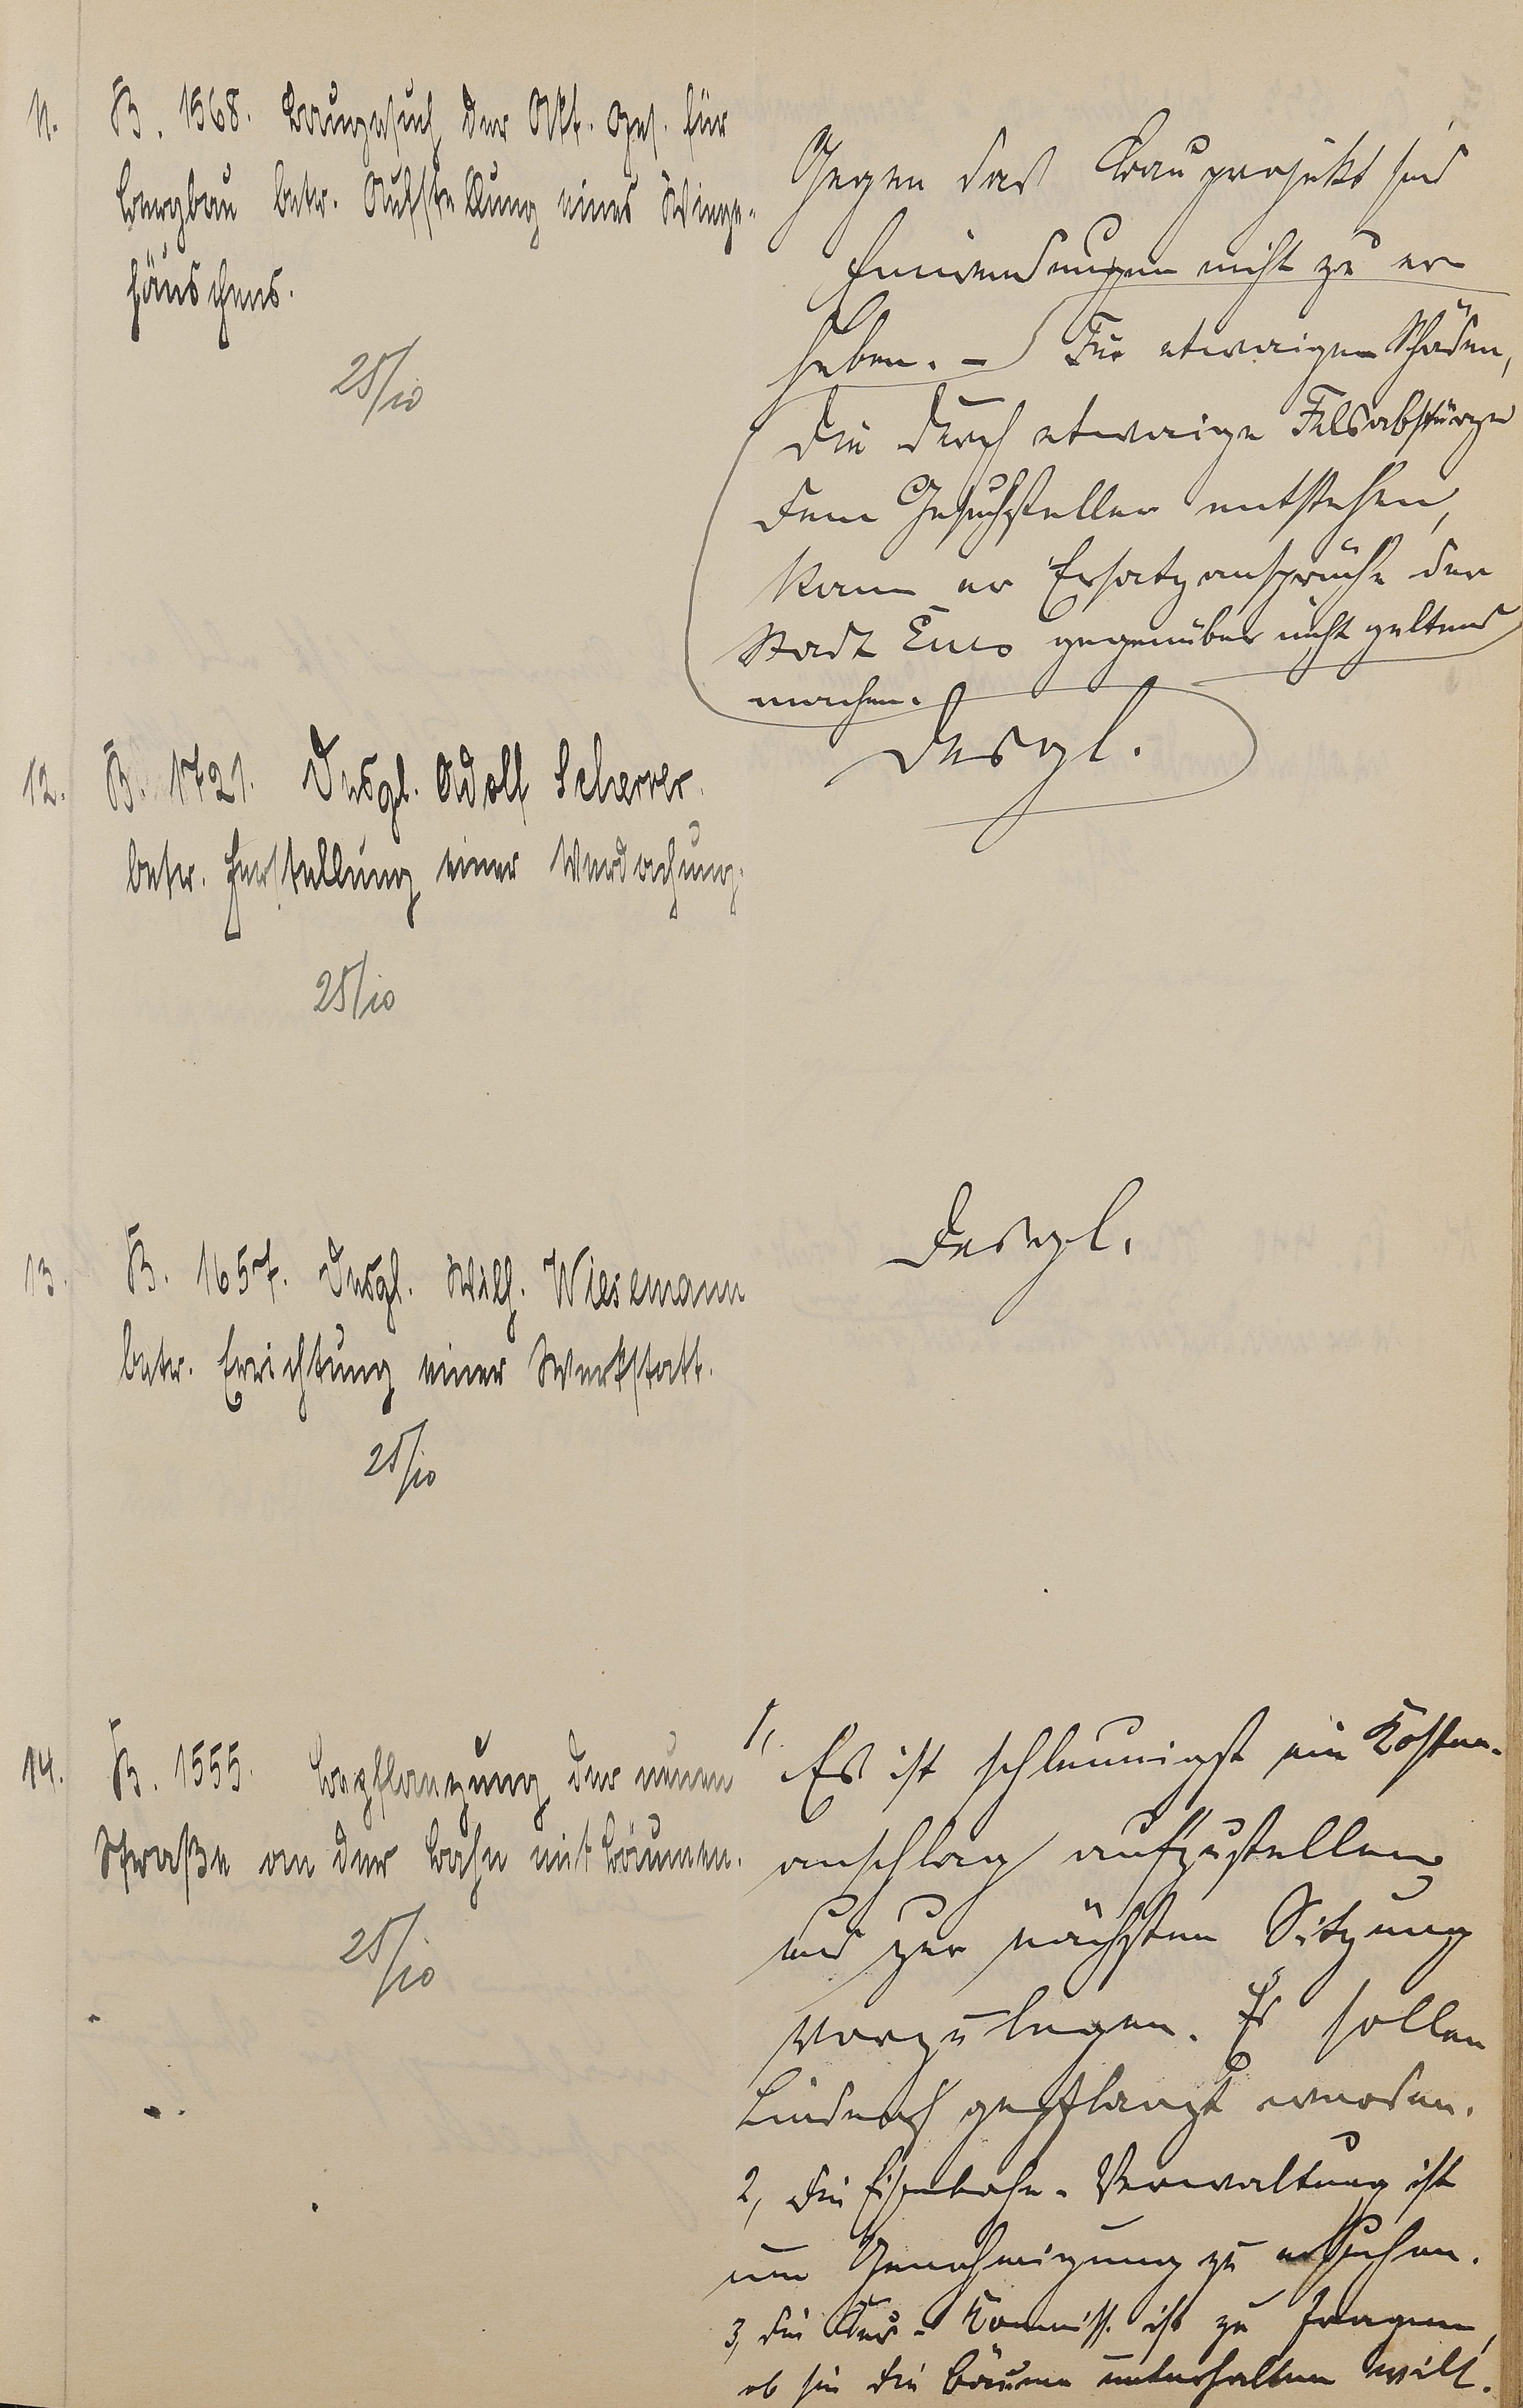 11. B. 1568. Baugesuch der Akt. Ges. für
Bergbau betr. Aufstellung eines Wiege-
häuschens.
25/10
Gegen das Bauprojekt sind
Einwendungen nicht zu er
heben. – Für etwaigen Schäden,
die durch etwaige Felsabstürze
dem Gesuchsteller entstehen,
kann er Ersatzansprüche der
Stadt Ems gegenüber nicht geltend
machen.
12. B. 1721. Desgl. Adolf Scherrer
betr. Herstellung einer Verdachung.
25/10
Desgl.
13. B. 1657. Desgl. Wilh. Wiesemann
betr. Errichtung einer Werkstatt.
25/10
Desgl.
14. B. 1555. Bepflanzung der neuen
Straße an der Bahn mit Bäumen.
25/10
1, Es ist schleunigst ein Kosten-
anschlag aufzustellen
und zur nächsten Sitzung
vorzulegen. Es sollen
gepflanzt werden.
2, Die Eisenbahn-Verwaltung ist
um Genehmigung zu ersuchen.
3, die Kur-Kommiss. ist zu fragen,
ob sie die Bäume unterhalten will.